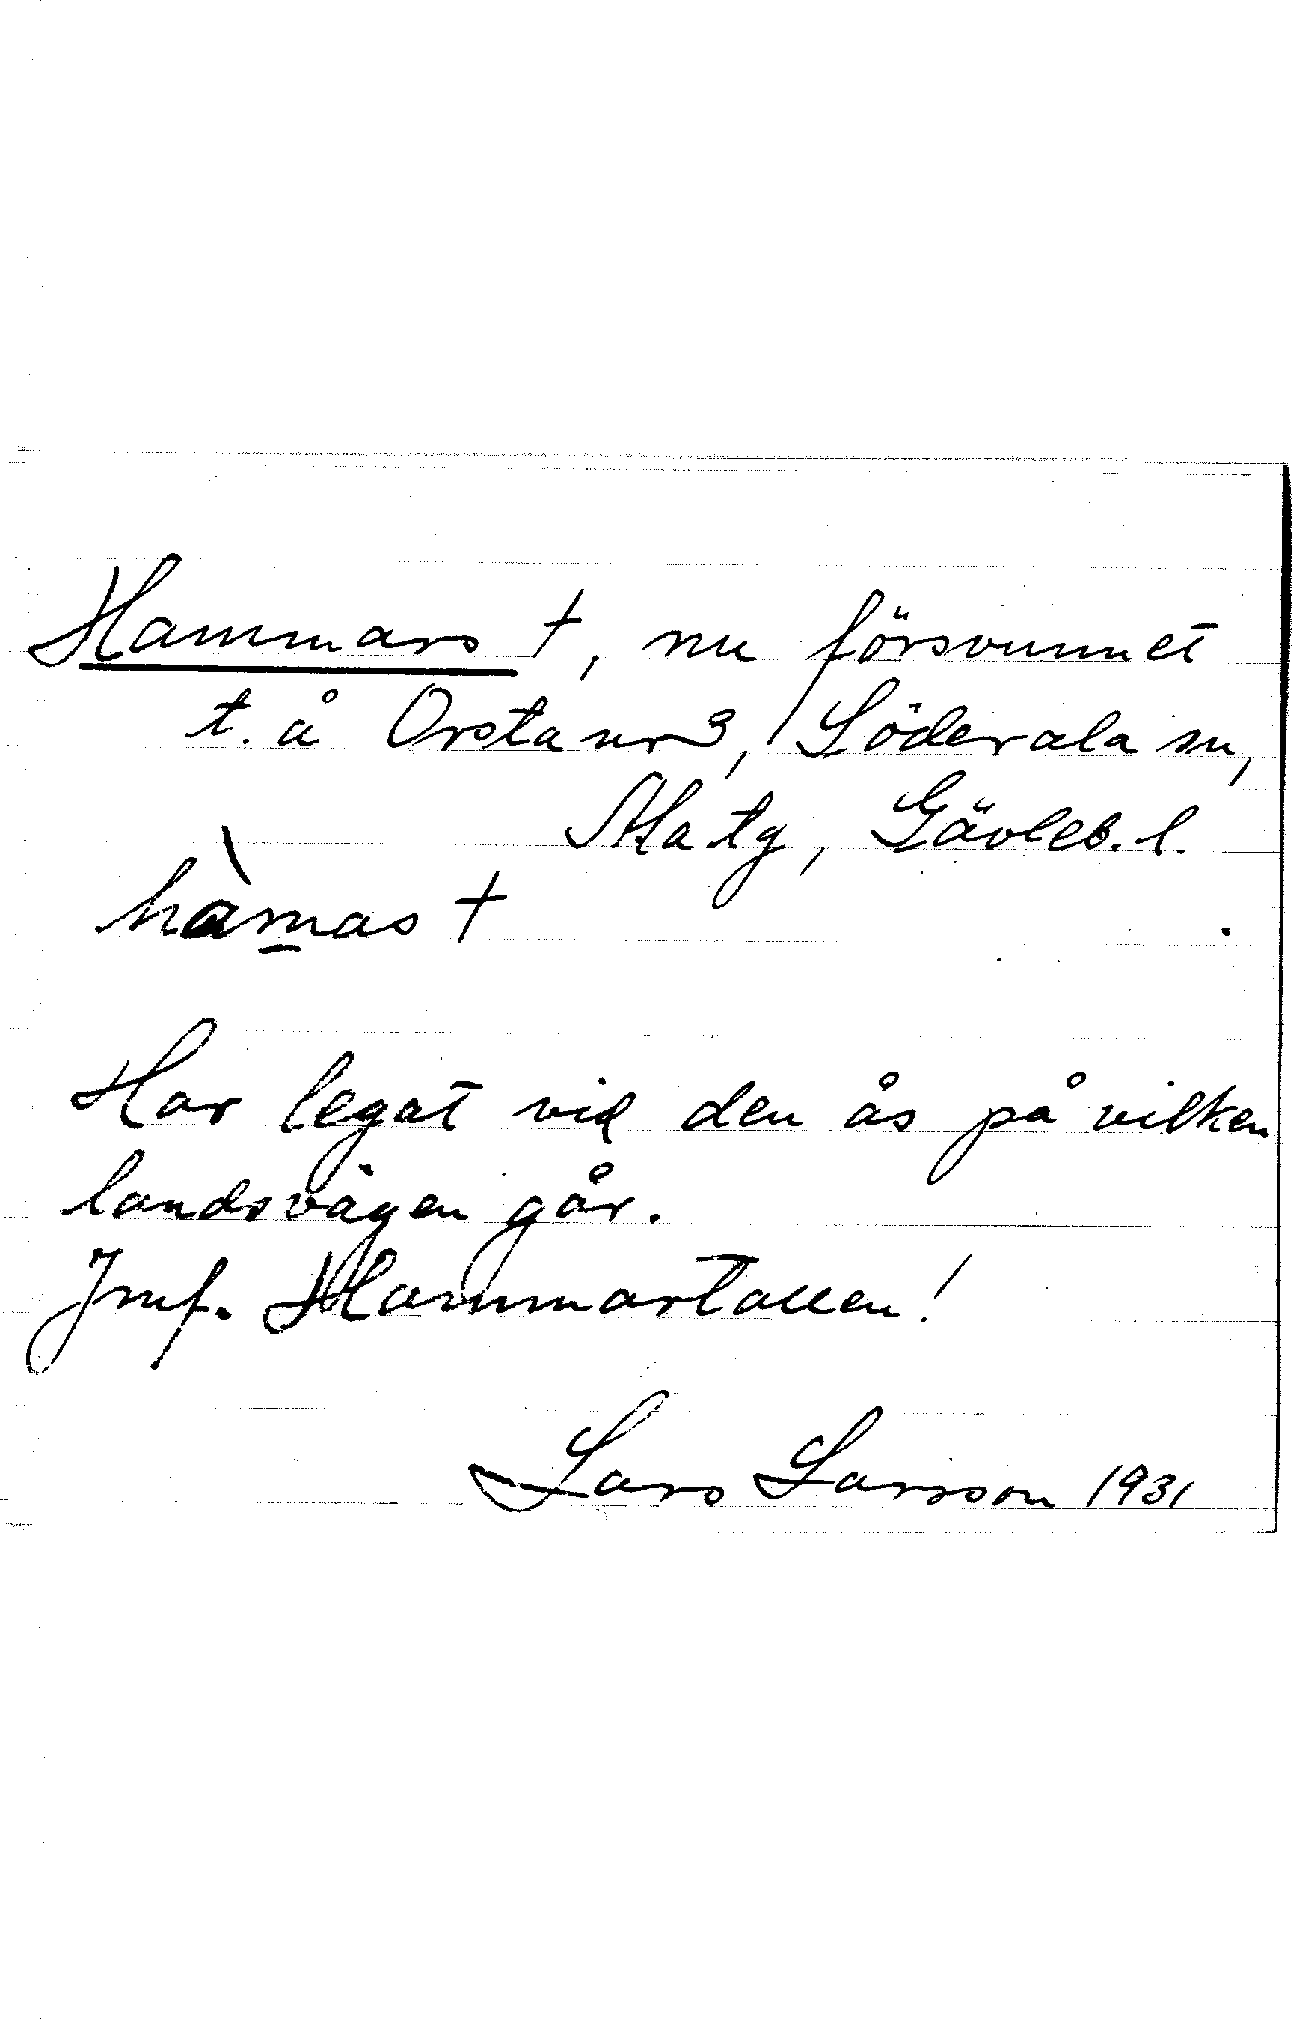 Hammars †, nu försvunnet
t. å Orsta nr 3, Söderala sn,
Ala tg, Gävleb. l.
hàmas †
Har legat vid den ås på vilken
landsvägen går.
Jmf. Hammartallen!
Lars Larsson 1931